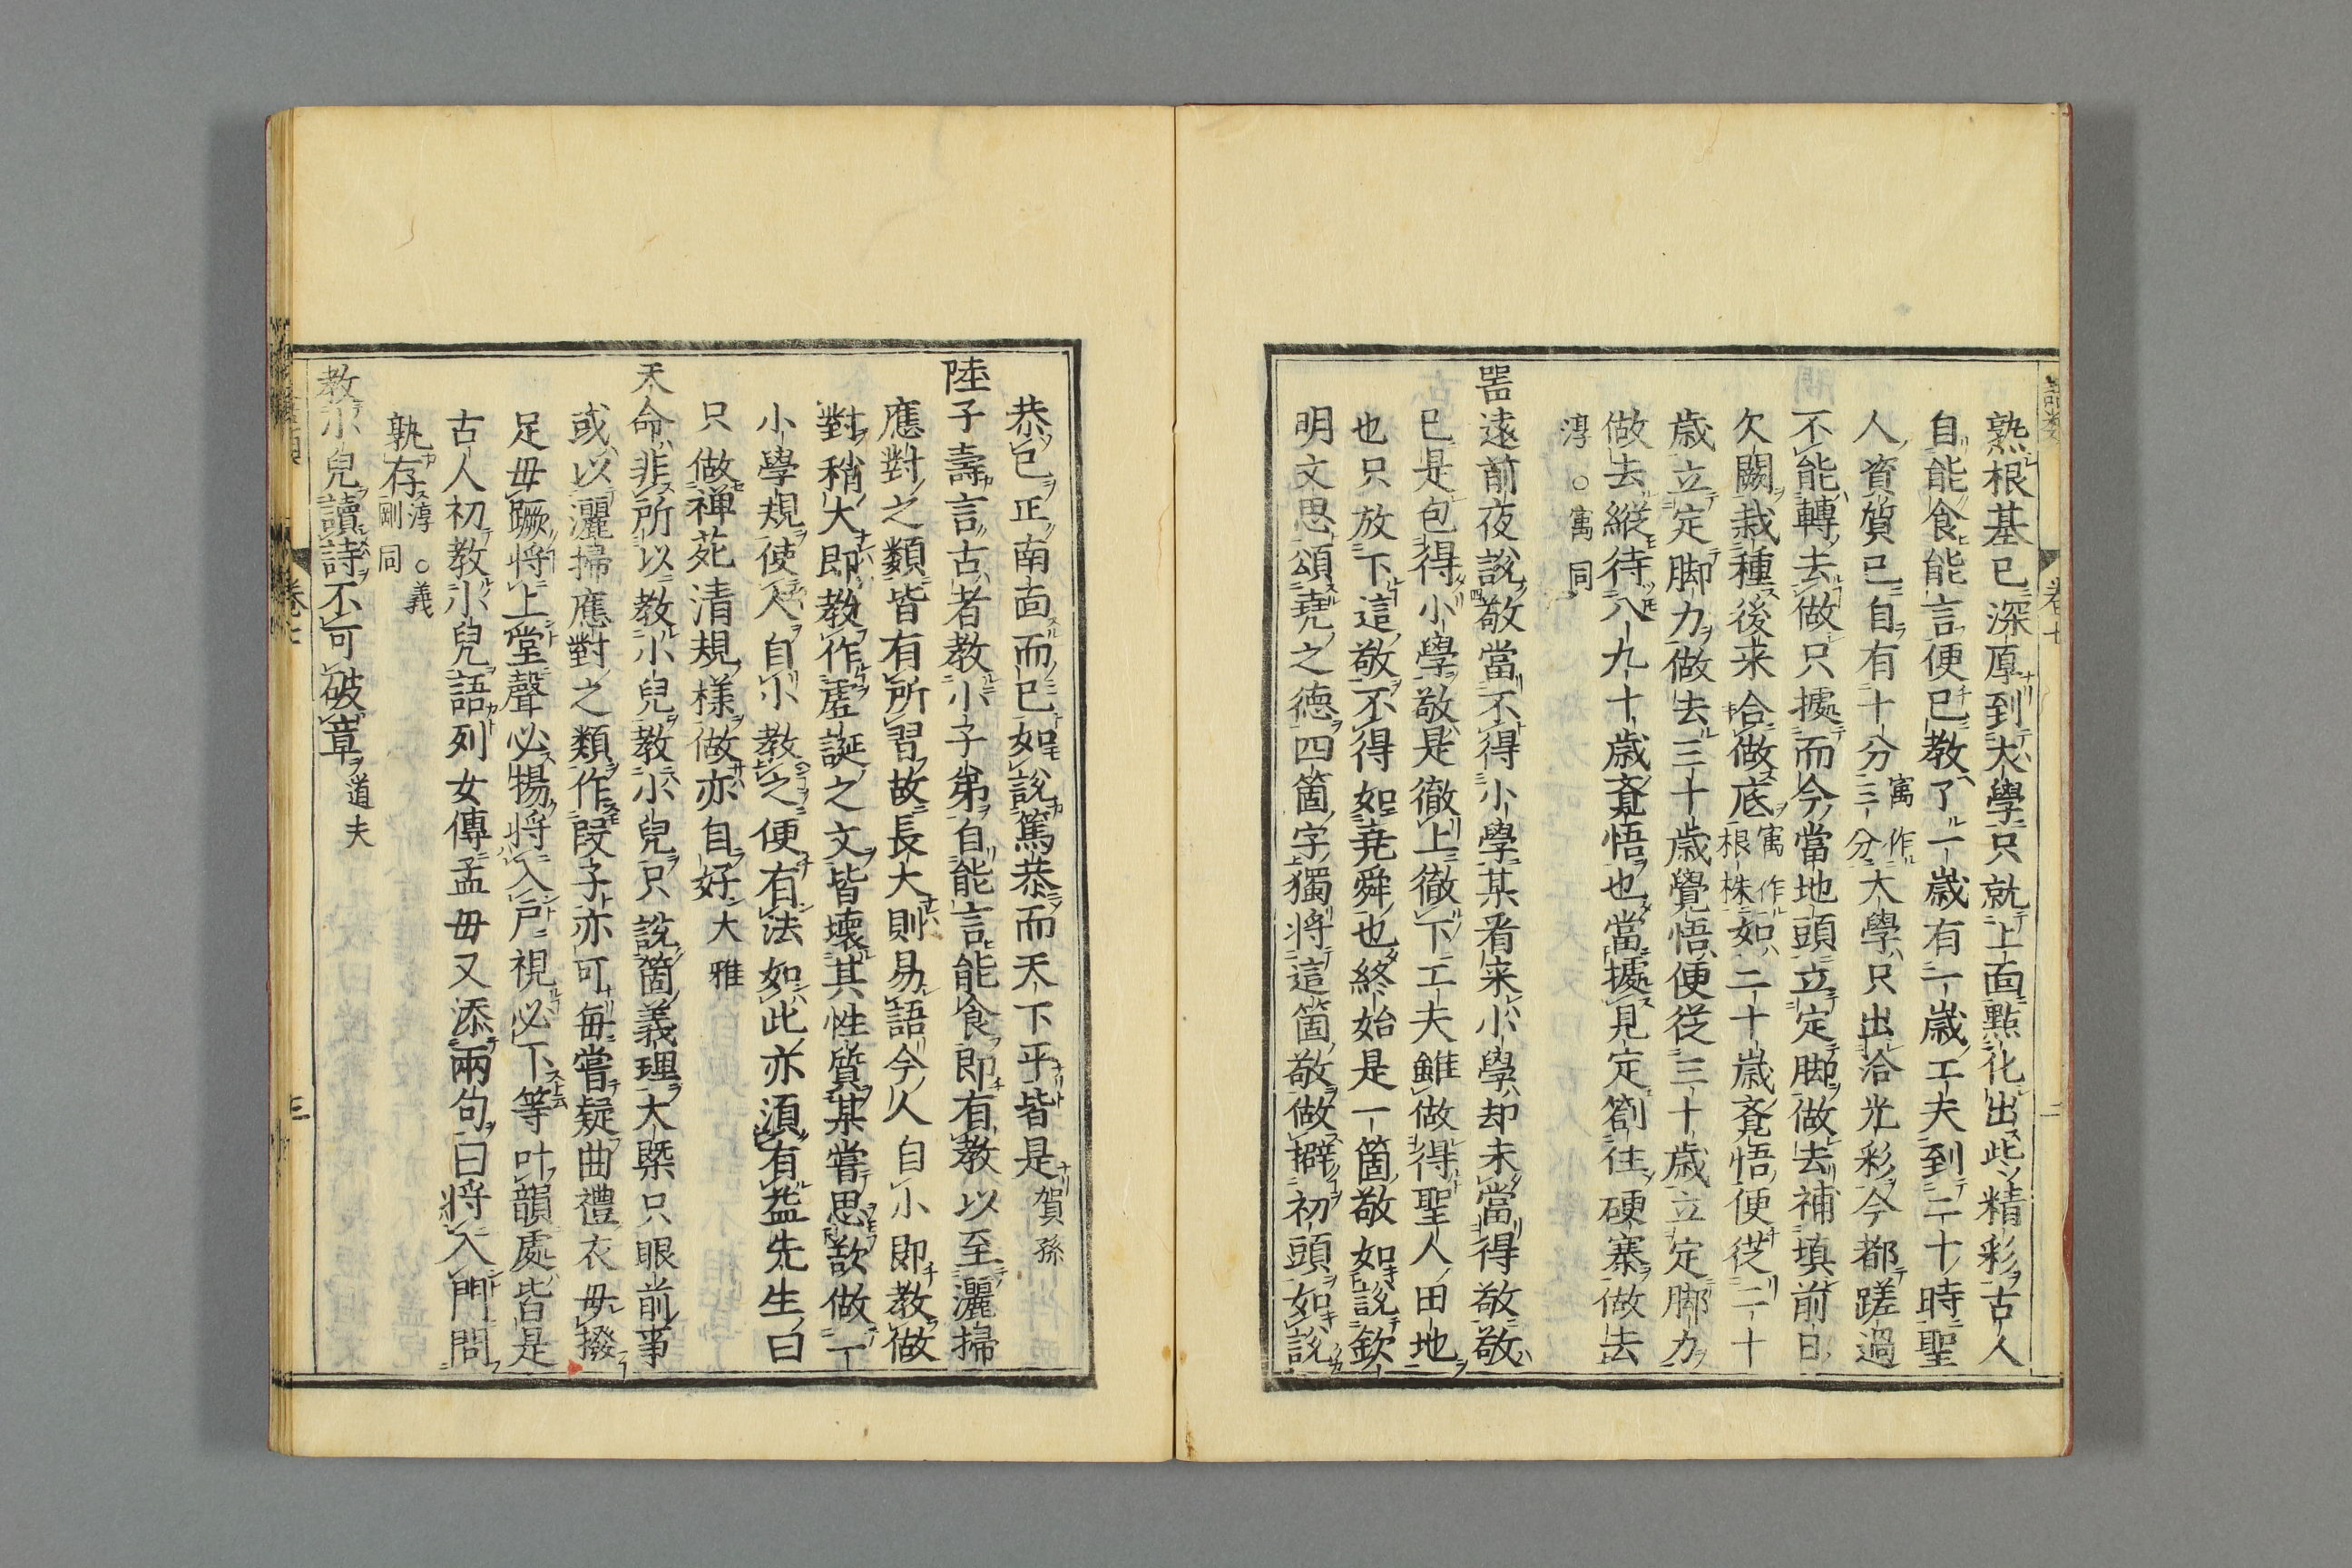 熟根基已深厚到大學只就上面點化出些精彩古人
自能食能言便已教了一歲有一歲工夫到二十時聖
人資質已自有十分寓作三分大學只出治光彩今都蹉過
不能轉去做只據而今當地頭立定脚做去補填前日
欠闕栽種後来合做底寓作根株如二十歳覚悟便従二十
歳立定脚力做去三十歳覺悟便従三十歳立定脚力
做去縦待八九十歳覚悟也當據見定劄住硬寨做去
淳○寓同
器遠前夜說敬當不得小學某看来小學却未當得敬敬
已是包得小學敬是徹上徹下工夫雖做得聖人田地
也只放下這敬不得如尭舜也終始是一箇敬如說欽
明文思頌尭之德四箇字獨将這箇敬做擗初頭如說
恭己正南面而已如說篤恭而天下平皆是賀孫
陸子壽言古者教小子弟自能言能食即有教以至灑掃
應對之類皆有所習故長大則易語今人自小即教做
對稍大即教作虚誕之文皆壊其性質某嘗思欲做一
小學規使人自小教之便有法如此亦須有益先生曰
只做禅苑清規樣做亦自好大雅
天命非所以教小兒教小兒只說箇義理大槩只眼前事
或以灑掃應對之類作段子亦可毎嘗疑曲禮衣毋撥
足毋蹶将上堂聲必揚将入戸視必下等叶韻處皆是
古人初教小兒語列女傳孟母又添兩句曰将入門問
孰存淳○義剛同
教小兒讀詩不可破章道夫
語類
卷七
二
卷七
三